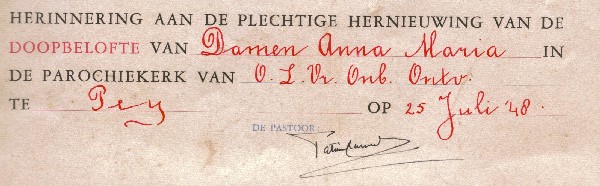 HERINNERING AAN DE PLECHTIGE HERNIEUWING VAN DE
DOOPBELOFTE VAN Damen Anna Maria IN
DE PAROCHIEKERK VAN O. L. Vr. Onb. Ontv.
TE Pey OP 25 Juli '48.
DE PASTOOR: